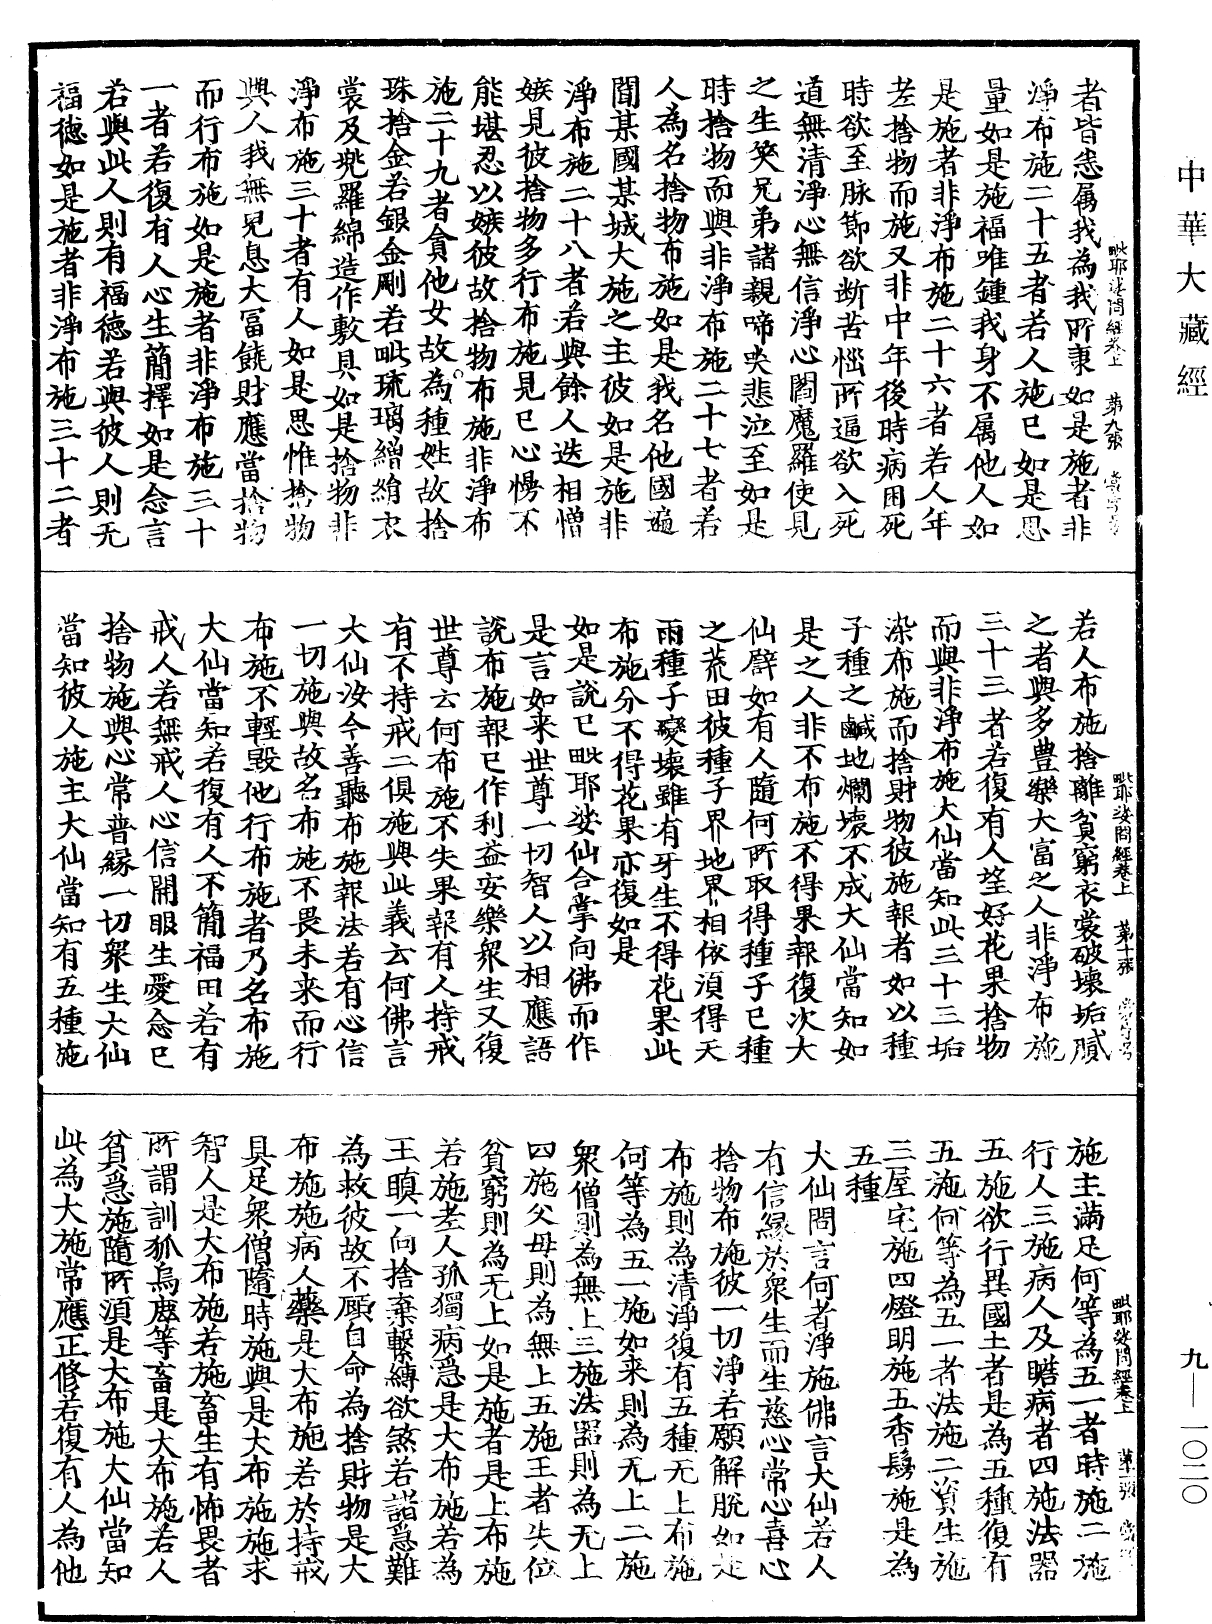 中華大藏經
毗耶娑問經卷上 第九張
者皆悉属我為我所秉如是施者非
淨布施二十五者若人施已如是思
量如是施福唯鍾我身不属他人如
是施者非淨布施二十六者若人年
老捨物而施又非中年後時病困死
時欲至脉節欲断苦惱所逼欲入死
道無清淨心無信淨心閻魔羅使見
之生笑兄弟諸親啼哭悲泣至如是
時捨物而與非淨布施二十七者若
人為名捨物布施如是我名他國遍
聞某國某城大施之主彼如是施非
淨布施二十八者若與餘人迭相憎
嫉見彼捨物多行布施見已心愕不
能堪忍以嫉彼故捨物布施非淨布
施二十九者貪他女故為種姓故捨
珠捨金若銀金剛若毗琉璃繒絹衣
裳及兠羅綿造作敷具如是捨物非
淨布施三十者有人如是思惟捨物
與人我無兒息大冨饒財應當捨物
而行布施如是施者非淨布施三十
一者若復有人心生簡擇如是念言
若與此人則有福德若與彼人則无
福德如是施者非淨布施三十二者
毗耶娑問經卷上 第十張
若人布施捨離貧窮衣裳破壞垢膩
之者與多豊樂大富之人非淨布施
三十三者若復有人望好花果捨物
而與非淨布施大仙當知此三十三垢
染布施而捨財物彼施報者如以種
子種之鹹地爛壞不成大仙當知如
是之人非不布施不得果報復次大
仙譬如有人隨何所取得種子已種
之荒田彼種子界地界相依湏得天
雨種子變壞雖有牙生不得花果此
布施分不得花果亦復如是
如是說已毗耶娑仙合掌向佛而作
是言如来世尊一切智人以相應語
說布施報已作利益安樂衆生又復
世尊云何布施不失果報有人持戒
有不持戒二俱施與此義云何佛言
大仙汝今善聽布施報法若有心信
一切施與故名布施不畏未来而行
布施不輕毀他行布施者乃名布施
大仙當知若復有人不簡福田若有
戒人若無戒人心信開眼生愛念已
捨物施與心常普緣一切衆生大仙
當知彼人施主大仙當知有五種施
毗耶娑問經卷上
施主滿足何等為五一者時施二施
行人三施病人及瞻病者四施法器
五施欲行異國土者是為五種復有
五施何等為五一者法施二資生施
三屋宅施四燈明施五香鬘施是為
五種
大仙問言何者淨施佛言大仙若人
有信緣於衆生而生慈心常心喜心
捨物布施彼一切淨若願解脫如是
布施則為清淨復有五種无上布施
何等為五一施如来則為无上二施
衆僧則為無上三施法器則為无上
四施父母則為無上五施王者失位
貧窮則為无上如是施者是上布施
若施老人孤獨病急是大布施若為
王瞋一向捨棄繫縛欲煞若諸急難
為救彼故不顧自命為捨財物是大
布施施病人藥是大布施若於持戒
具足衆僧隨時施與是大布施施求
智人是大布施若施畜生有怖畏者
所謂訓狐烏鹿等畜是大布施若人
貧急施隨所湏是大布施大仙當知
此為大施常應正修若復有人為他
九—一〇二〇